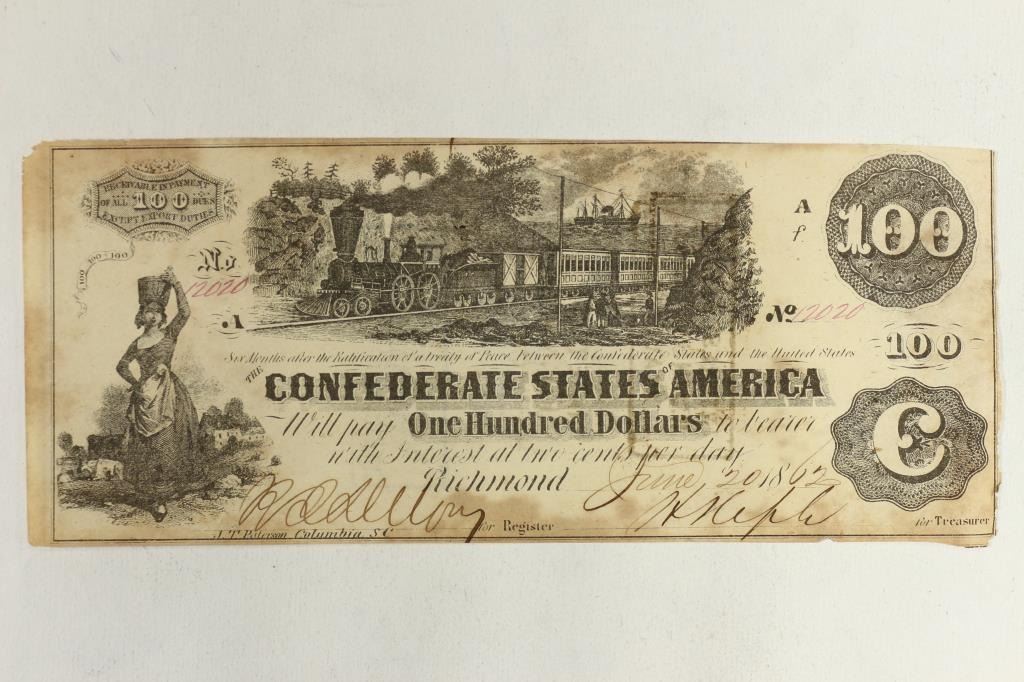 RECEIVABLE IN PAYMENT
OF ALL 100 DUES
EXCEPT EXPORT DUTIES
100 100 100
No 12020
A
A
f.
100
No 12020
100
Six Months after the Ratification of a treaty of Peace between the Confederate States and the United States
THE CONFEDERATE STATES OF AMERICA
Will pay One Hundred Dollars to bearer
with Interest at two cents per day
Richmond June 20 1862
C
for Register
for Treasurer
J. T. Paterson Columbia S.C.